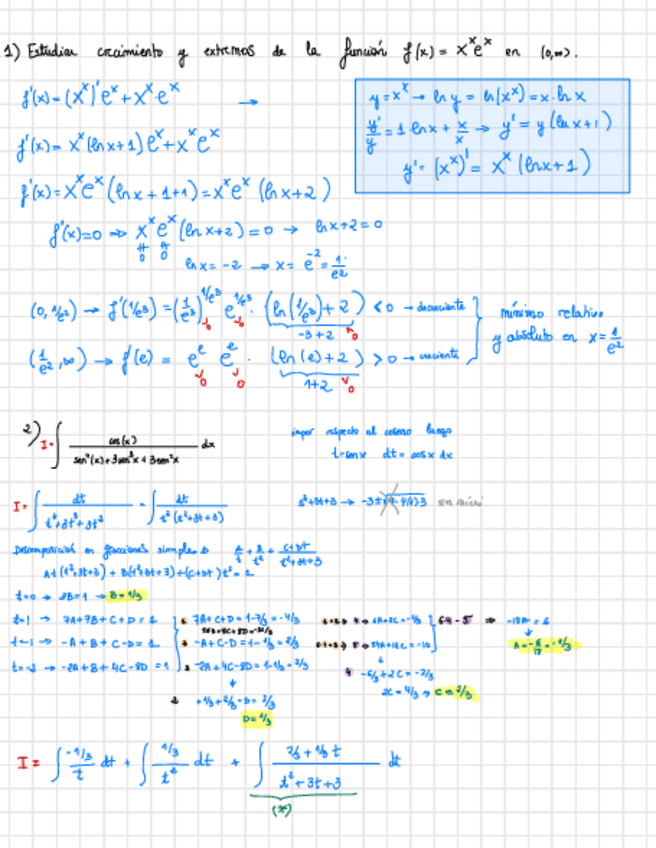 1) Estudiar crecimiento y extremos de la función f(x) = x^x e^x en (0,∞).
f'(x) = (x^x)' e^x + x^x e^x →
y = x^x → ln y = ln(x^x) = x·ln x
y'/y = 1·ln x + x/x → y' = y(ln x + 1)
y' = (x^x)' = x^x (ln x + 1)
f'(x) = x^x (ln x + 1) e^x + x^x e^x
f'(x) = x^x e^x (ln x + 1 + 1) = x^x e^x (ln x + 2)
f'(x) = 0 ⇒ x^x e^x (ln x + 2) = 0 → ln x + 2 = 0
ln x = -2 → x = e^-2 = 1/e^2
(0, 1/e^2) → f'(1/e^3) = (1/e^3)^1/e^3 e^1/e^3 · (ln(1/e^3) + 2) < 0 → decreciente
-3+2
(1/e^2, ∞) → f'(e) = e^e e^e · (ln(e) + 2) > 0 → creciente
1+2
mínimo relativo
y absoluto en x = 1/e^2
2) I = ∫ cos(x) / sen^4(x) + 3sen^3x + 3sen^2x dx
impar respecto al coseno luego
t = sen x dt = cos x dx
I = ∫ dt / t^4 + 3t^3 + 3t^2 = ∫ dt / t^2(t^2 + 3t + 3)
t^2 + 3t + 3 →
Descomposición en fracciones simples A/t + B/t^2 + C+Dt / t^2+3t+3
At(t^2+3t+3) + B(t^2+3t+3) + (C+Dt)t^2 = 1
t=0 → 3B = 1 → B = 1/3
t=1 → 7A + 7B + C + D = 1
7A + C + D = 1 - 7/3 = -4/3
t=-1 → -A + B + C - D = 1
-A + C - D = 1 - 1/3 = 2/3
t=-2 → -2A + B + 4C - 8D = 1
-2A + 4C - 8D = 1 - 1/3 = 2/3
-18A = 6
A = -6/18 = -1/3
-6/3 + 2C = -2/3
2C = 4/3 → C = 2/3
+1/3 + 2/3 - D = 2/3
D = 1/3
I = ∫ -1/3 / t dt + ∫ 1/3 / t^2 dt + ∫ 2/3 + 1/3 t / t^2 + 3t + 3 dt
(*)